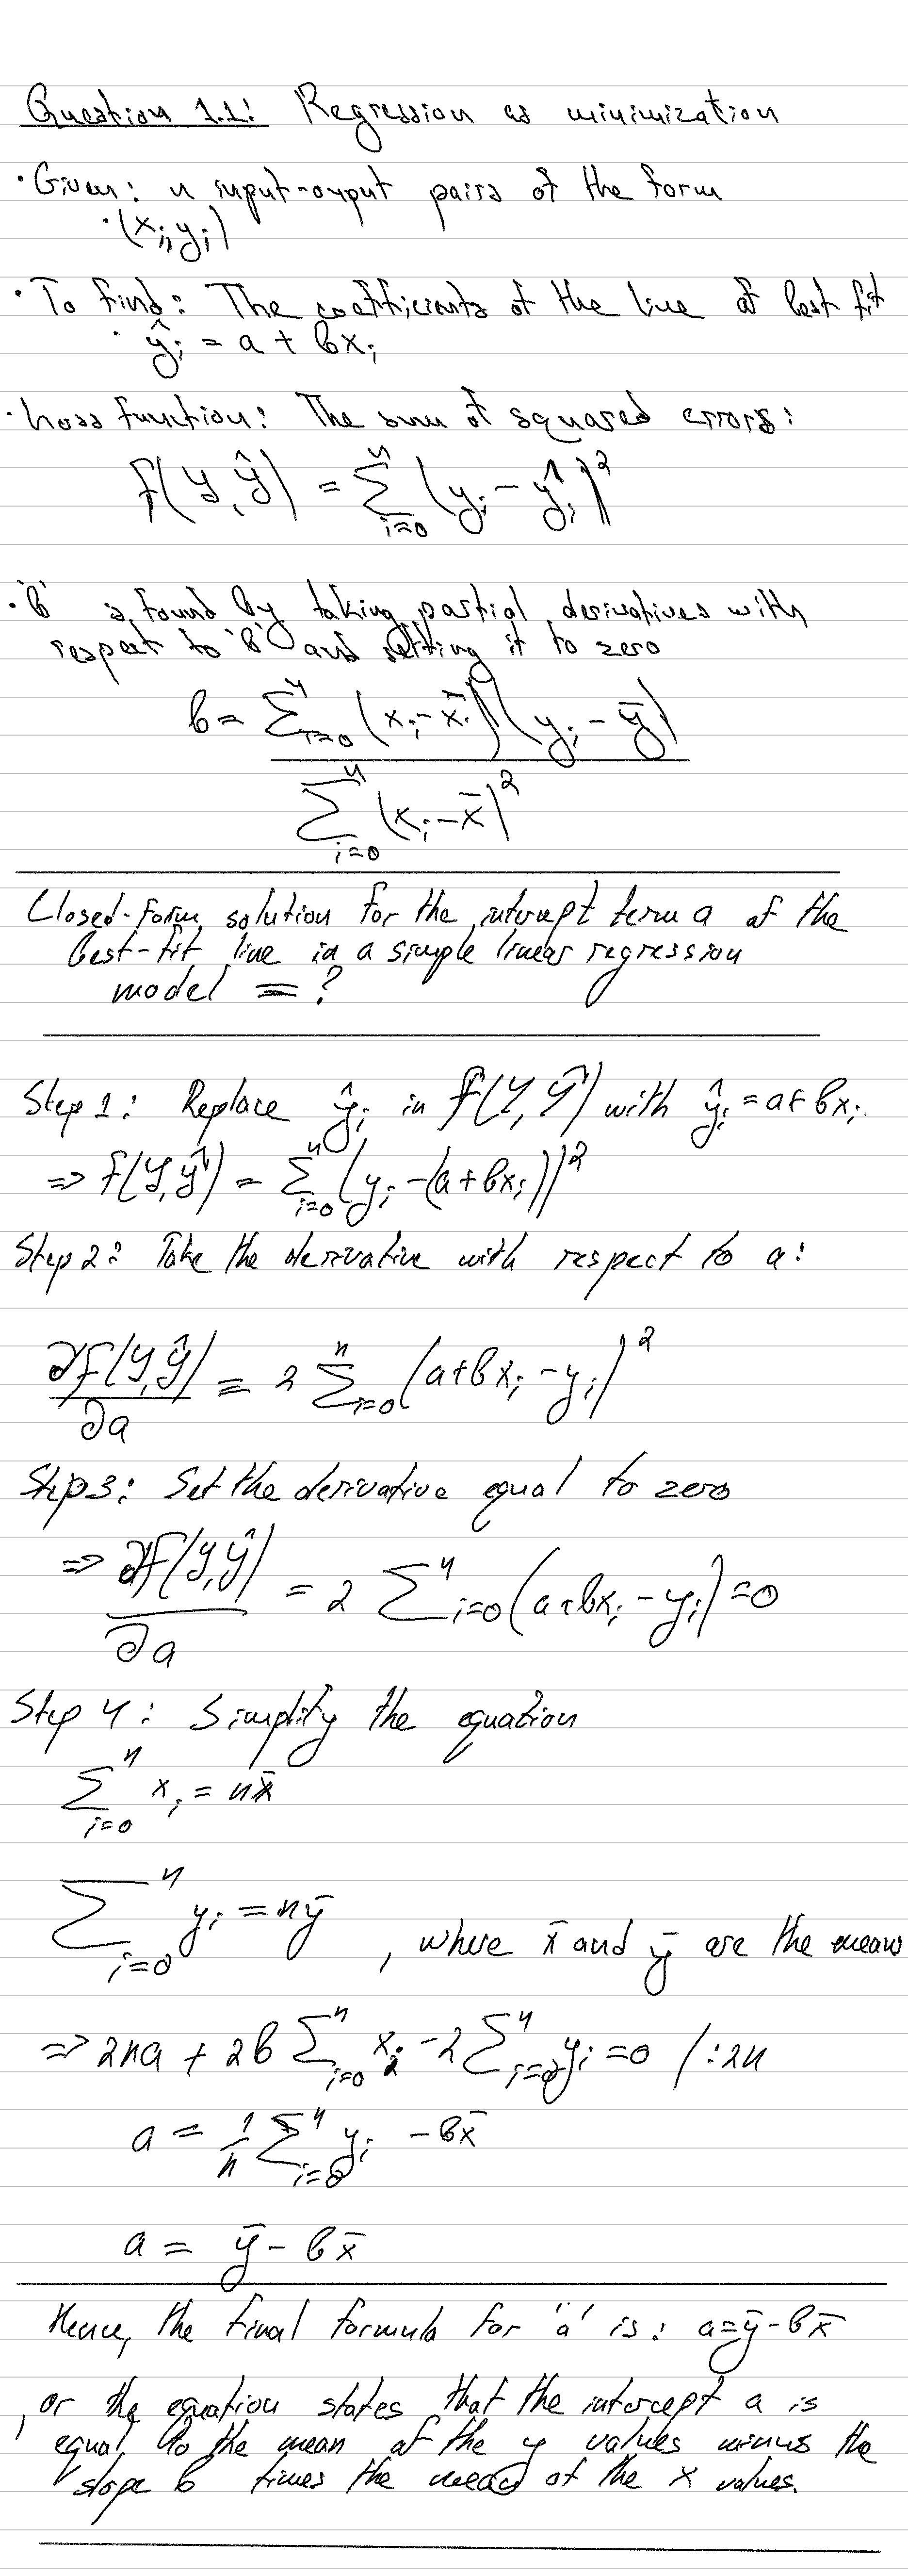 Question 1.1: Regression as minimization
· Given: n input-ouput pairs of the form
· (x_i, y_i)
· To find: The coefficients of the line of best fit
· ŷ_i = a + bx_i
· Loss function: The sum of squared errors:
f(y, ŷ) = ∑_{i=0}^{n} (y_i - ŷ_i)^2
· 'b' is found by taking partial derivatives with
respect to 'b' and setting it to zero
b = ∑_{i=0}^{n} (x_i - x̄)(y_i - ȳ)
∑_{i=0}^{n} (x_i - x̄)^2
Closed-form solution for the intercept term a of the
best-fit line in a simple linear regression
model = ?
Step 1: Replace ŷ_i in f(y, ŷ) with ŷ_i = a + bx_i.
=> f(y, ŷ) = ∑_{i=0}^{n} (y_i - (a + bx_i))^2
Step 2: Take the derivative with respect to a:
∂f(y, ŷ)/∂a = 2 ∑_{i=0}^{n} (a + bx_i - y_i)^2
Step 3: Set the derivative equal to zero
=> ∂f(y, ŷ)/∂a = 2 ∑_{i=0}^{n} (a + bx_i - y_i) = 0
Step 4: Simplify the equation
∑_{i=0}^{n} x_i = nx̄
∑_{i=0}^{n} y_i = nȳ , where x̄ and ȳ are the means
=> 2na + 2b ∑_{i=0}^{n} x_i - 2 ∑_{i=0}^{n} y_i = 0 /:2n
a = 1/n ∑_{i=0}^{n} y_i - bx̄
a = ȳ - bx̄
Hence, the final formula for 'a' is: a = ȳ - bx̄
, or the equation states that the intercept a is
equal to the mean of the y values minus the
slope b times the mean of the x values.